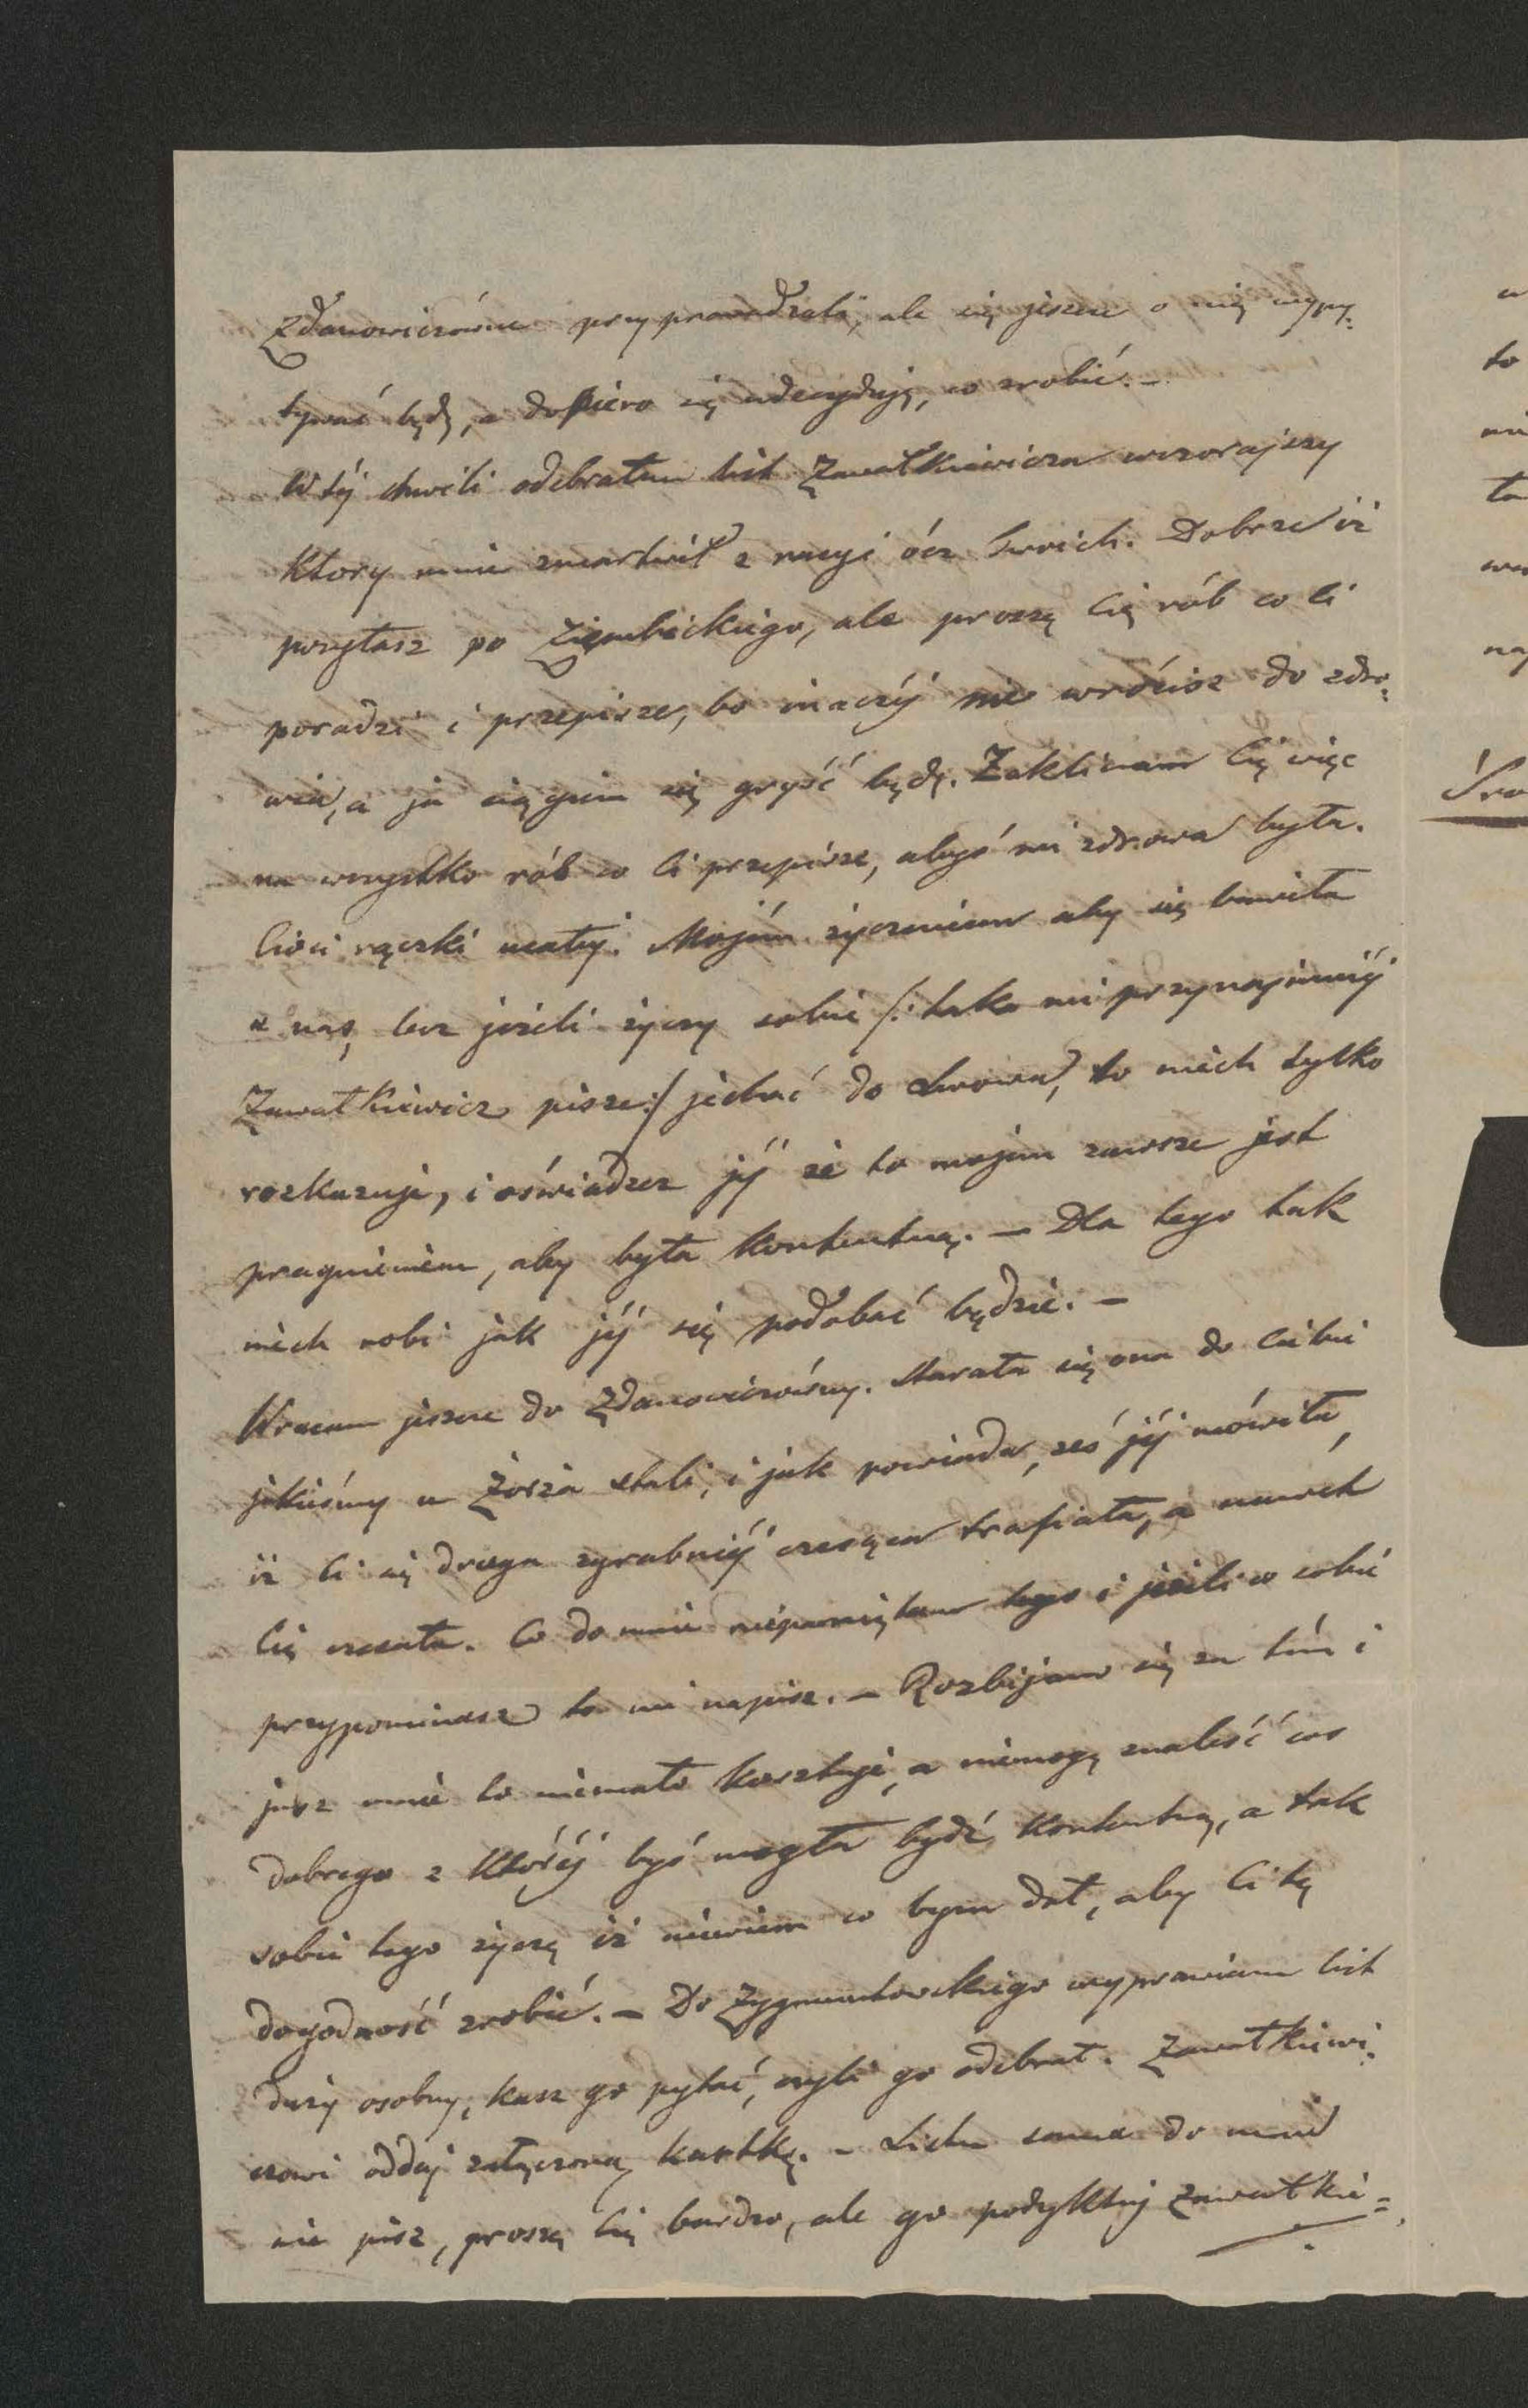 Zdanowiczównę przyprowadzali, ale się jeszcze o nię wypy:
tywać będę, a dopiero się udecyduję, co zrobić. –
W téj chwili odebrałem list Zawałkiewicza wczorajszy
ktory mnie zmartwił z racyi ócz Twoich. Dobrze iż
posyłasz po Ziembickiego, ale proszę Cię rób co Ci
poradzi i przepisze, bo inaczéj nie wrócisz do zdro:
wia, a ja ciągiem się gryść będę. Zaklinam Cię więc
na wszystko rób co Ci przepisze, abyś mi zdrowa była.
Cioci rączki ucałuj. Mojém życzeniem aby się bawiła
u nas, lecz jeżeli życzy sobie /: tako mi przynajmniéj
Zawałkiewicz pisze :/ jechać do Lwowa, to niech tylko
rozkazuje, i oświadcz jéj że to mojém zawsze jest
pragnieniem, aby była kontentną. – Dla tego tak
niech robi jak jéj się podobać będzie. –
Wracam jeszcze do Zdanowiczówny. Starała się ona do Ciebie
jakieśmy u Żorża stali, i jak powiada, żeś jéj mówiła,
iż Ci się druga zgrabniéj czesząca trafiała, a nawet
Cię czesała. Co do mnie niepamiętam tego i jeżeli co sobie
przypominasz to mi napisz. – Rozbijam się za tém i
już mnie to niemało kosztuje, a niemogę znaleść cos
dobrego z któréj byś mogła bydź kontentną, a tak
sobie tego życzę iż niewiem co bym dał, aby Ci tę
dogodność zrobić. – Do Zygmuntowskiego wyprawiam list
duży osobny, kasz go pytać, czyli go odebrał. Zawałkiewi:
czowi oddaj załączoną kartkę. – Listu sama do mnie
nie pisz, proszę Cię bardzo, ale go podyktuj Zawałkie=